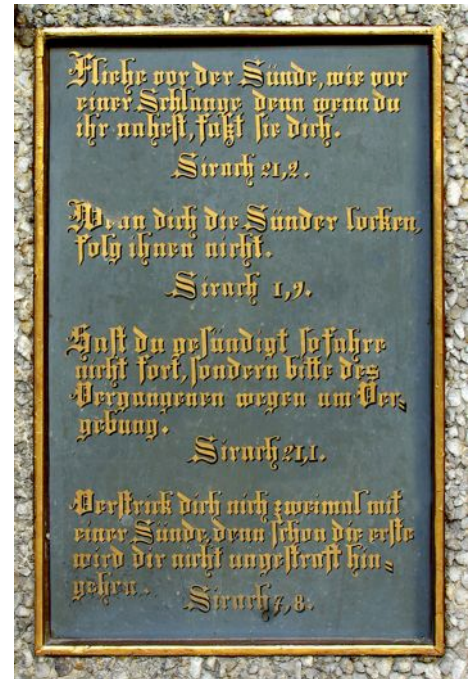 Fliehe vor der Sünde, wie vor
einer Schlange denn wenn du
ihr nahest, faßt sie dich.
Sirach 21,2.
Wenn dich die Sünder locken,
folg ihnen nicht.
Sirach 1,9.
Hast du gesündigt so fahre
nicht fort, sondern bitte des
Vergangenen wegen um Ver-
gebung.
Sirach 21,1.
Verstrick dich nich zweimal mit
einer Sünde, denn schon die erste
wird dir nicht ungestraft hin-
gehen.
Sirach 7,8.